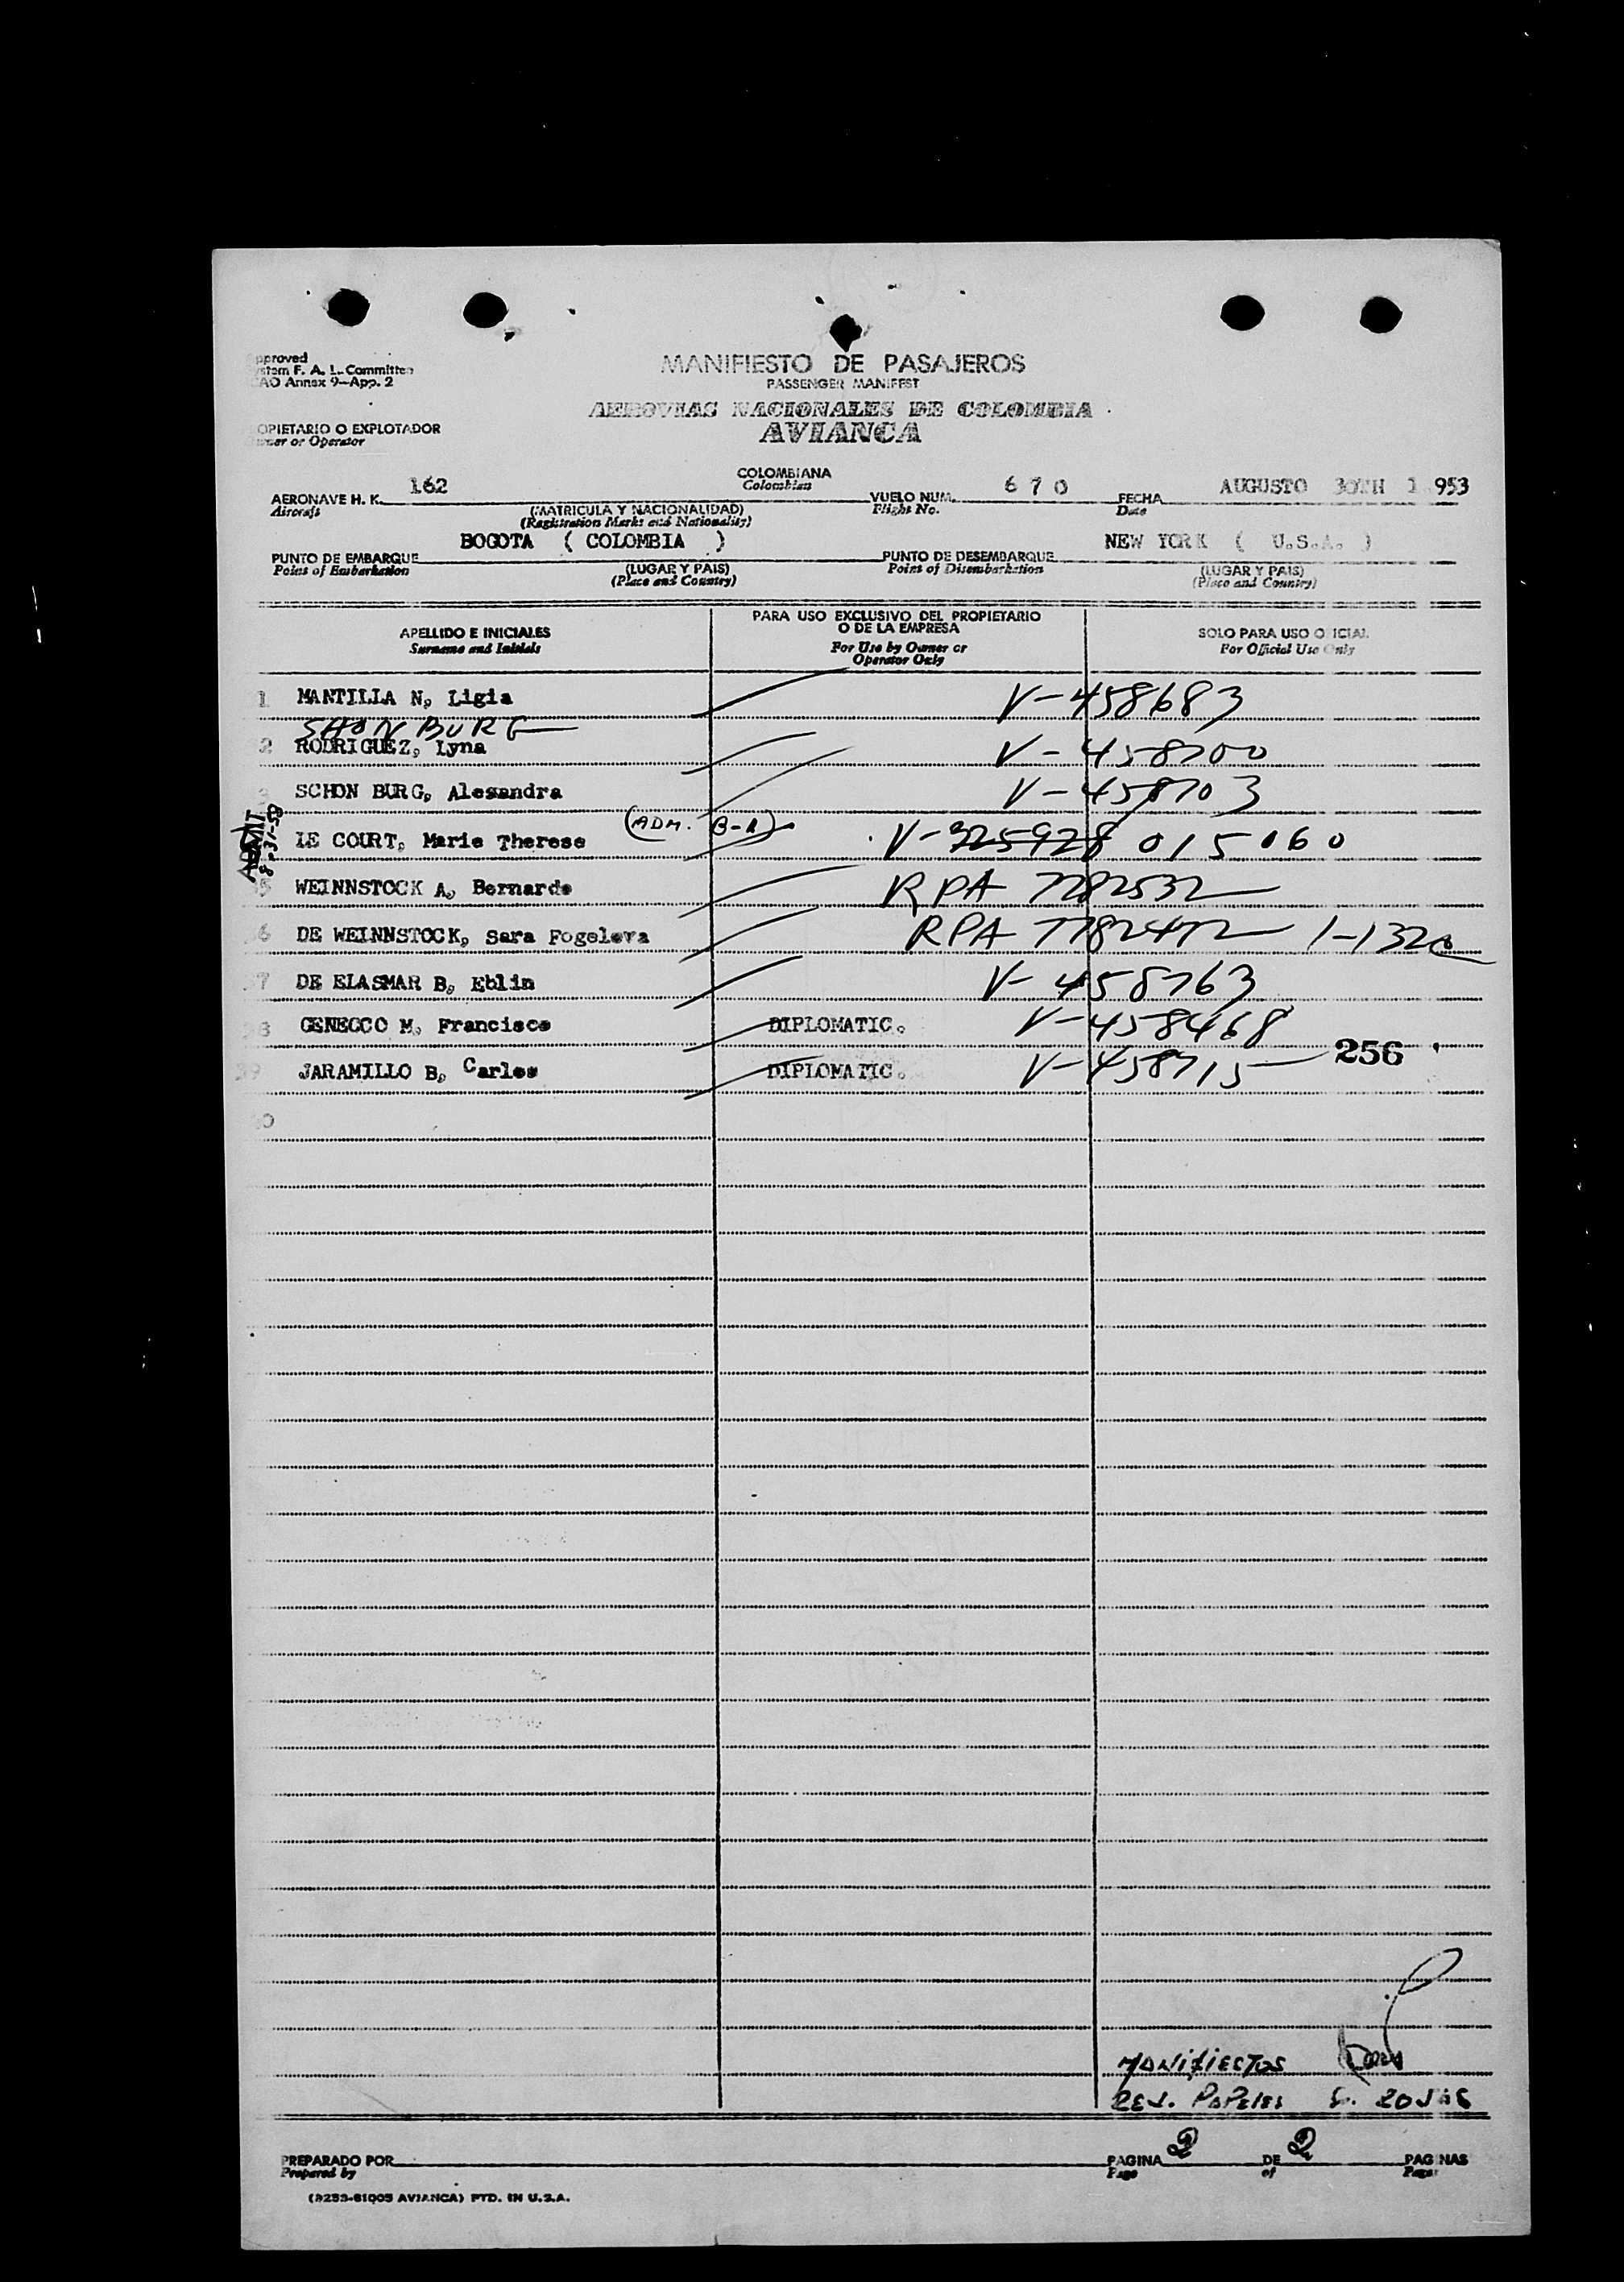 pproved
stem F. A. L. Committee
AO Annex 9—App. 2
MANIFIESTO DE PASAJEROS
PASSENGER MANIFEST
AEROVIAS NACIONALES DE COLOMBIA
AVIANCA
OPIETARIO O EXPLOTADOR
ner or Operator
AERONAVE H. K. 162 COLOMBIANA VUELO NUM. 6 7 0 FECHA AUGUSTO 30TH 1 953
Aircraft Colombian Flight No. Date
(MATRICULA Y NACIONALIDAD)
(Registration Marks and Nationality)
PUNTO DE EMBARQUE BOGOTA ( COLOMBIA ) PUNTO DE DESEMBARQUE NEW YORK ( U.S.A. )
Point of Embarkation (LUGAR Y PAIS) Point of Disembarkation (LUGAR Y PAIS)
(Place and Country) (Place and Country)
APELLIDO E INICIALES PARA USO EXCLUSIVO DEL PROPIETARIO O DE LA EMPRESA SOLO PARA USO O ICIAL
Surname and Initials For Use by Owner or Operator Only For Official Use Only
1 MANTILLA N, Ligia V-458683
SHONBURG
2 RODRIGUEZ, Lyna V-458700
3 SCHON BURG, Alexandra V-458703
ADMIT 8-31-53 LE COURT, Marie Therese (ADM. B-1) V-325928 015060
5 WEINNSTOCK A, Bernardo RPA 7782532
6 DE WEINNSTOCK, Sara Fogeleva RPA 7782472 1-132a
7 DE ELASMAR B, Eblin V-458763
8 GENECCO M, Francisco DIPLOMATIC. V-458468
39 JARAMILLO B, Carlos DIPLOMATIC. V-458715 256
0
MANIFIESTOS
REV. PAPELES C. ROJAS
PREPARADO POR PAGINA 2 DE 2 PAGINAS
Prepared by Page of Pages
(3253-61005 AVIANCA) PTD. IN U.S.A.